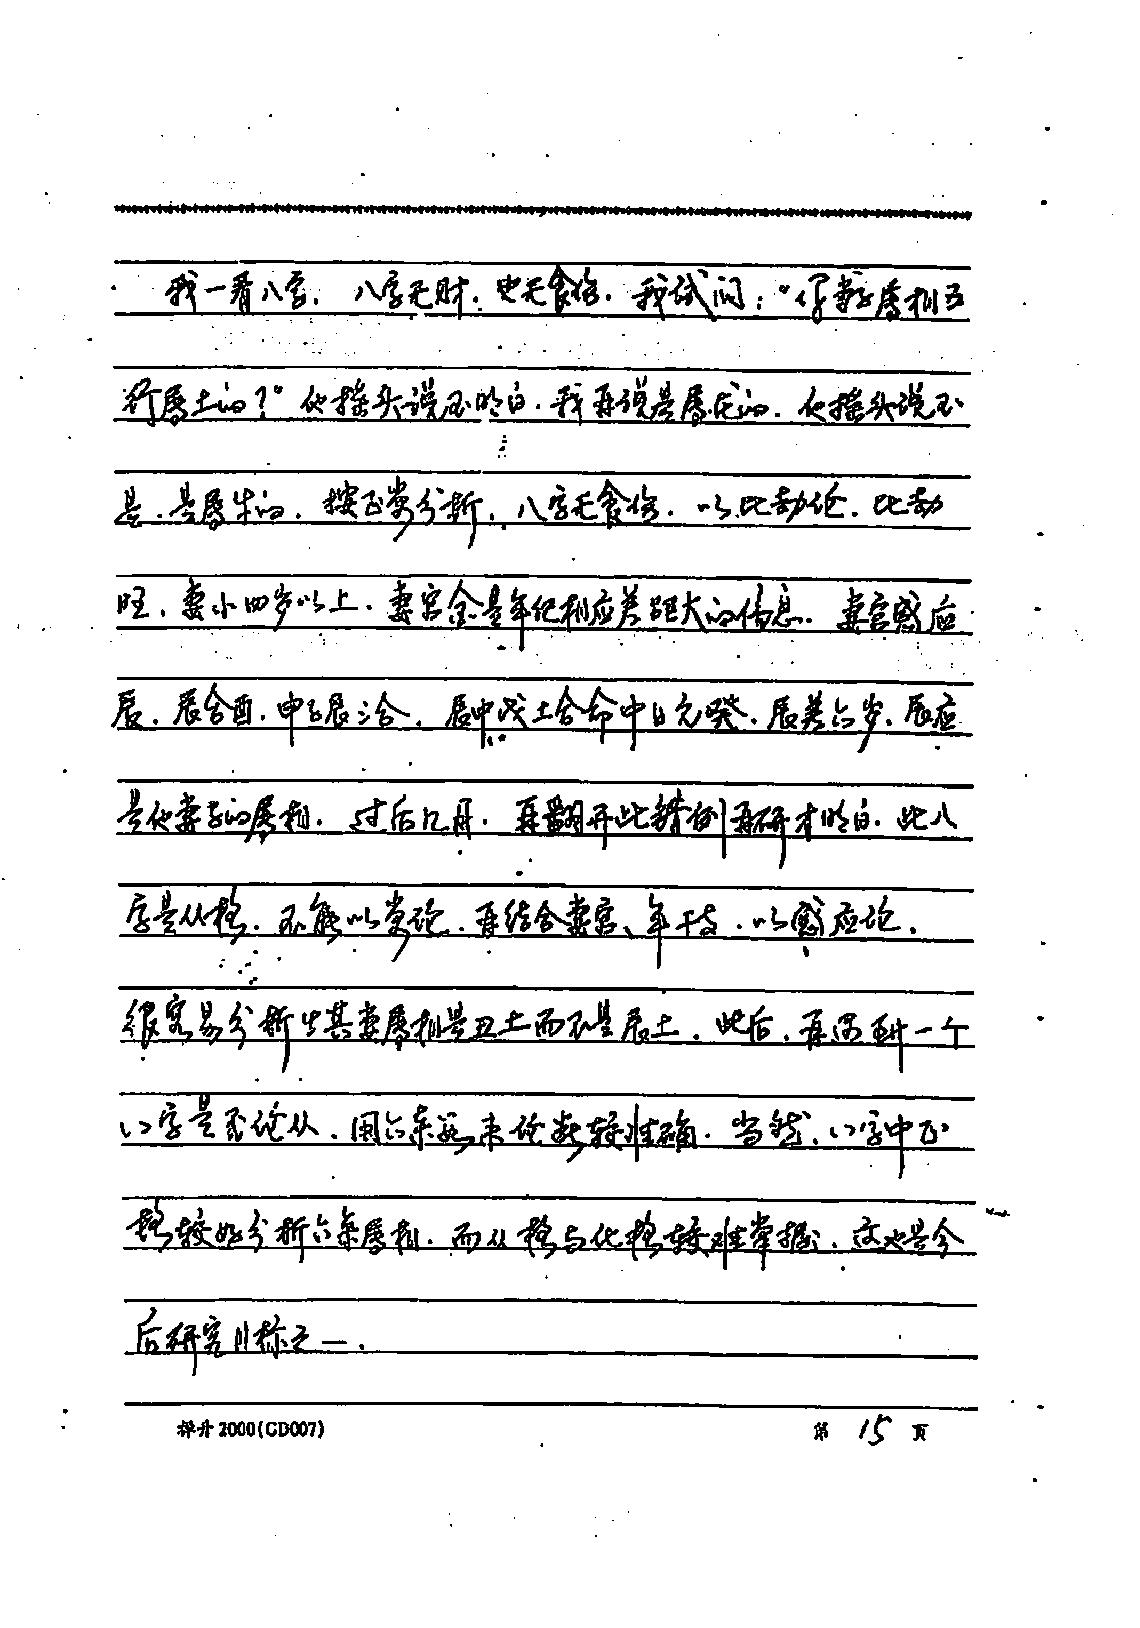 我一看八字，八字无财，也无食伤，我试问：“你妻子属相五
行属土的？”他摇头说不明白，我再说是属龙的，他摇头说不
是，是属牛的，按正常分析，八字无食伤，以比劫论，比劫
旺，妻小四岁以上，妻宫金是年纪相应差距大的信息，妻宫感应
辰，辰合酉，申子辰三合，辰中戊土合命中日元癸，辰差六岁，辰应
是他妻子的属相，过后几月，再翻开此错例再研才明白，此八
字是从格，不能以常论，再结合妻宫、年干支，以感应论，
很容易分析出其妻属相是丑土而不是辰土，此后，再遇到一个
八字是否论从，用六亲来论断较准确，当然，八字中正
格较好分析六亲属相，而从格与化格较难掌握，这也是今
后研究目标之一，
祥升2000(CD007) 第 15 页